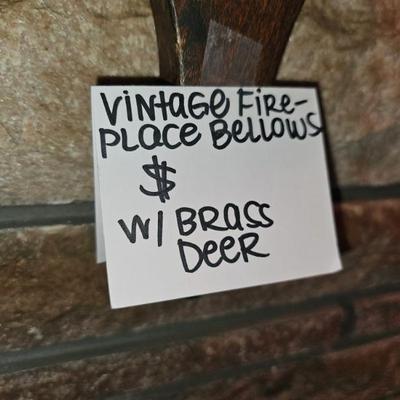 Vintage Fire-
place Bellows
$
W/ Brass
Deer